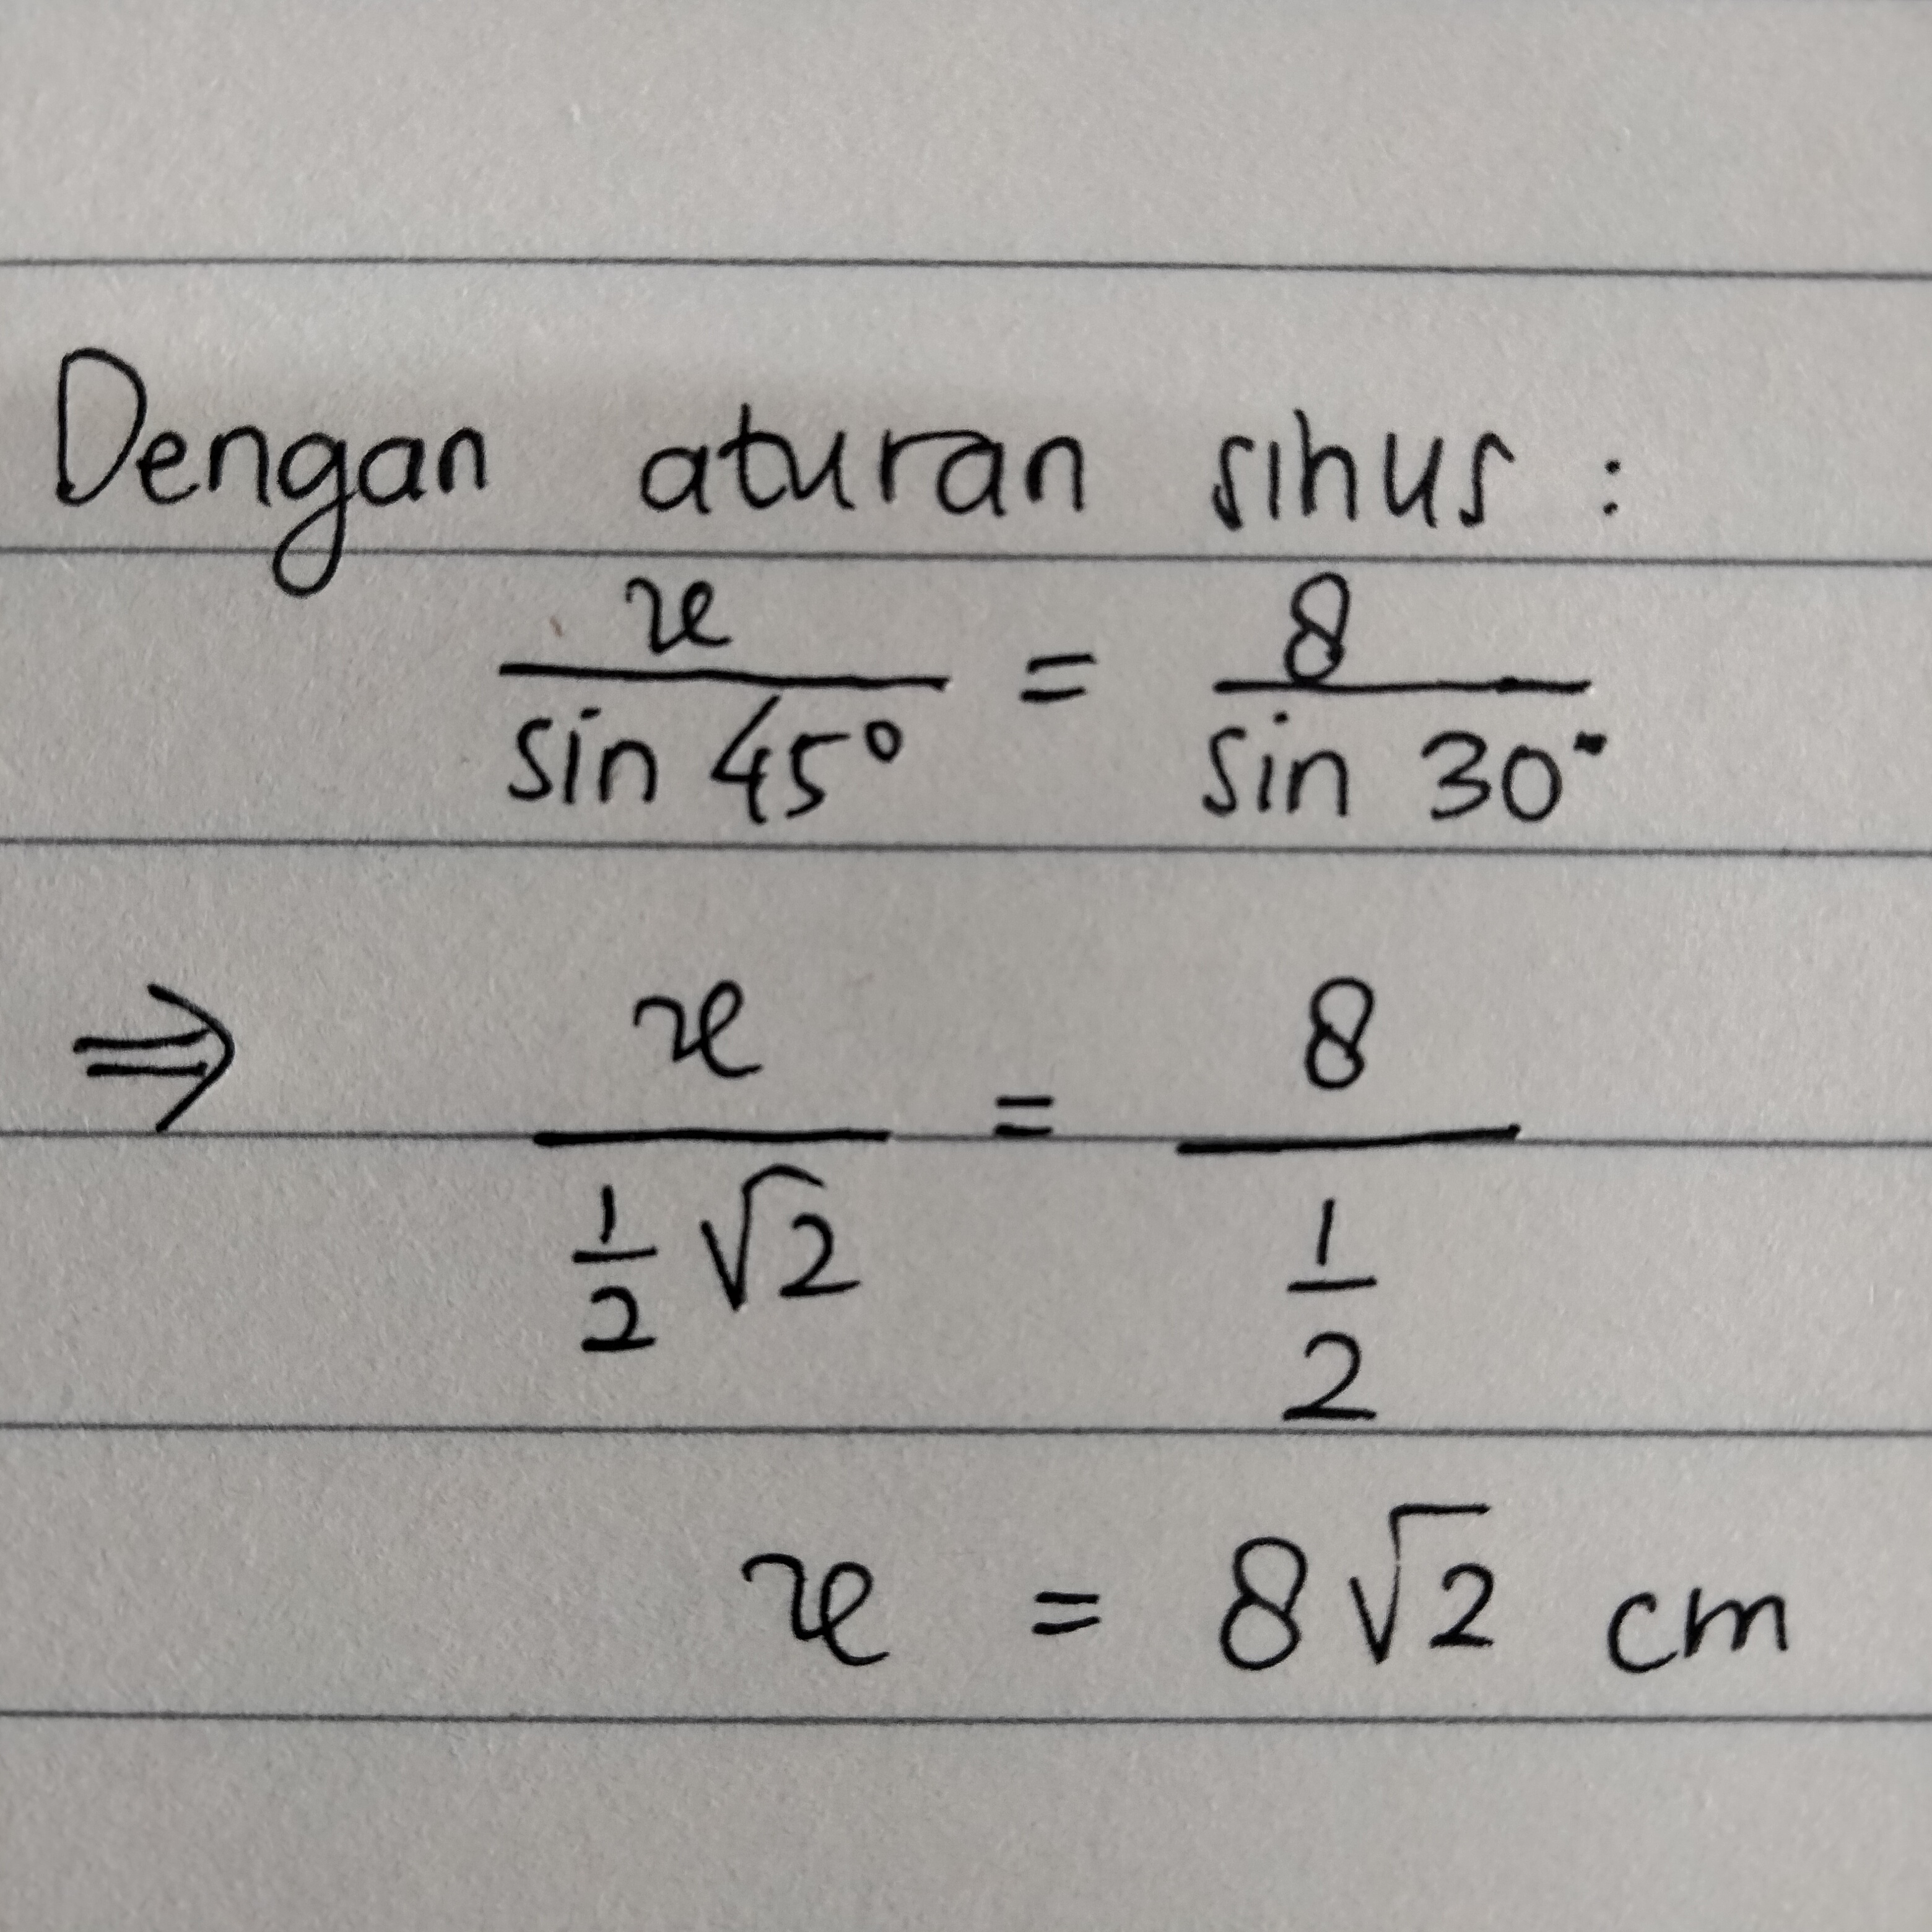 Dengan aturan sinus :
x / sin 45° = 8 / sin 30°
⇒ x / (1/2 √2) = 8 / (1/2)
x = 8√2 cm